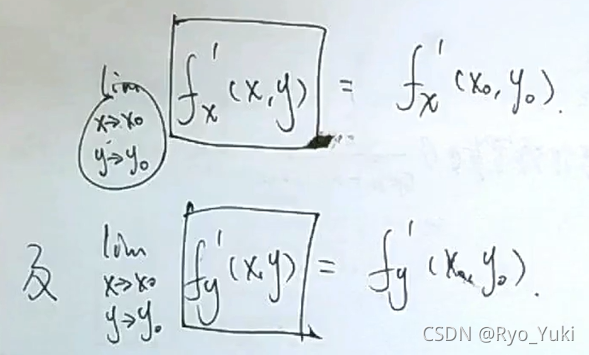 lim x→x₀ y→y₀ f'ₓ(x,y) = f'ₓ(x₀,y₀).
及 lim x→x₀ y→y₀ f'ᵧ(x,y) = f'ᵧ(x₀,y₀).
CSDN @Ryo_Yuki